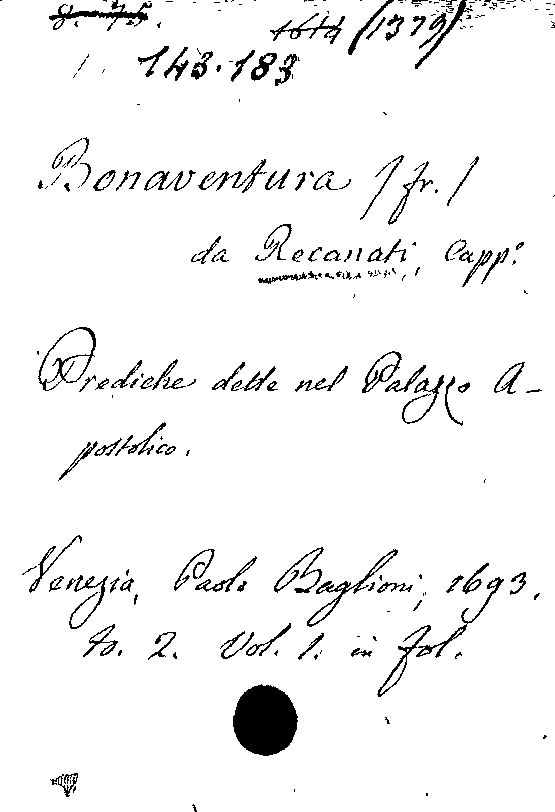 8. 75. 1614 (1379)
143.183
Bonaventura / fr. /
da Recanati, Capp.º
Prediche dette nel Palazzo A-
postolico.
Venezia, Paolo Baglioni, 1693.
to. 2. Vol. 1. in fol.